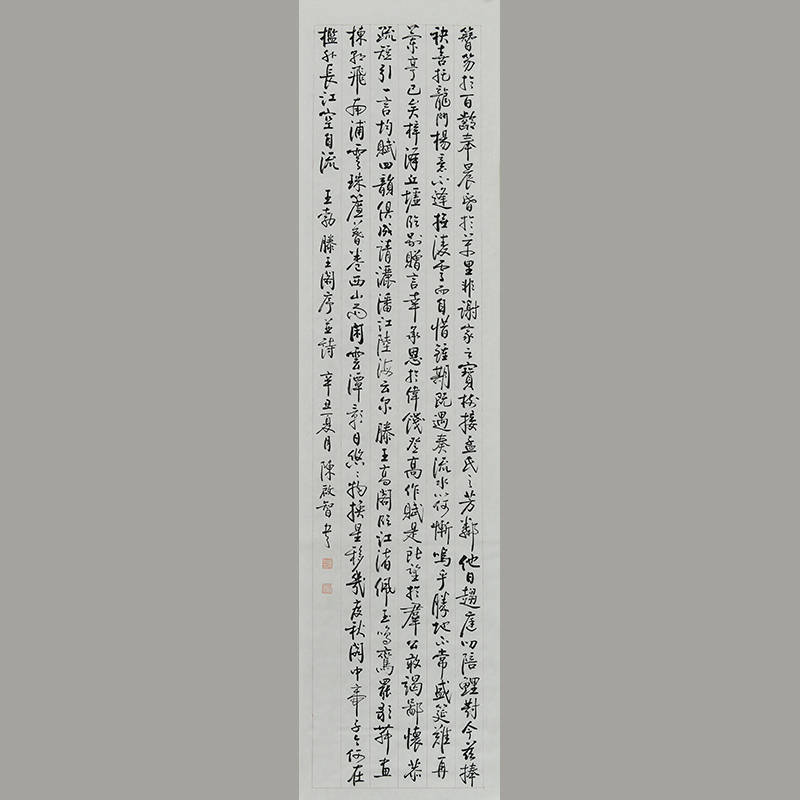 簪笏於百齡奉晨昏於萬里非謝家之寶樹接孟氏之芳鄰他日趨庭叨陪鯉對今茲捧
袂喜托龍門楊意不逢撫淩雲而自惜鍾期既遇奏流水以何慚嗚乎勝地不常盛筵難再
蘭亭已矣梓澤丘墟臨別贈言幸承恩於偉餞登高作賦是所望於羣公敢竭鄙懷恭
疏短引一言均賦四韻俱成請灑潘江陸海云尔滕王高閣臨江渚佩玉鳴鸞罷歌舞畫
棟朝飛南浦雲珠簾暮卷西山雨閑雲潭影日悠〻物換星移幾度秋閣中帝子今何在
檻外長江空自流 王勃滕王閣序並詩 辛丑夏月陳啟智書